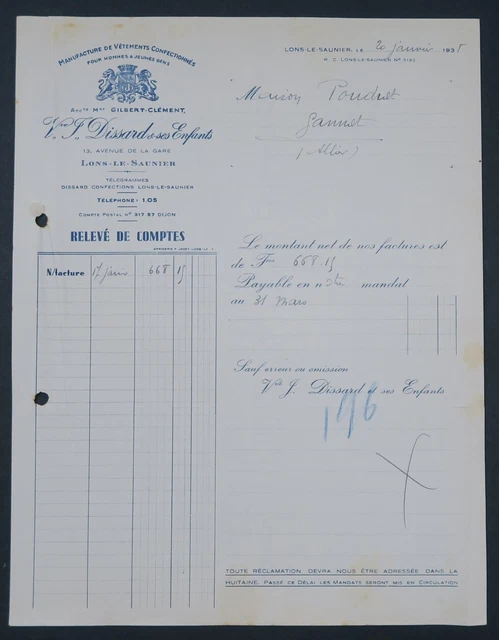 MANUFACTURE DE VÊTEMENTS CONFECTIONNÉS
POUR HOMMES & JEUNES GENS
ANCNE MON GILBERT-CLÉMENT,
Vve J. Dissard & ses Enfants
13, AVENUE DE LA GARE
LONS-LE-SAUNIER
TÉLÉGRAMMES
DISSARD CONFECTIONS LONS-LE-SAUNIER
TÉLÉPHONE: 1.05
COMPTE POSTAL N° 317 57 DIJON
RELEVÉ DE COMPTES
LONS-LE-SAUNIER, LE 20 janvier 1938
R. C. LONS-LE-SAUNIER N°
Maison Poudret
Gannat
(Allier)
N/facture 17 janv 668 15
Le montant net de nos factures est
de Frs 668.15
Payable en n/ mandat
au 31 Mars
Sauf erreur ou omission
Vve J. Dissard et ses Enfants
176
TOUTE RÉCLAMATION DEVRA NOUS ÊTRE ADRESSÉE DANS LA
HUITAINE. PASSÉ CE DÉLAI LES MANDATS SERONT MIS EN CIRCULATION